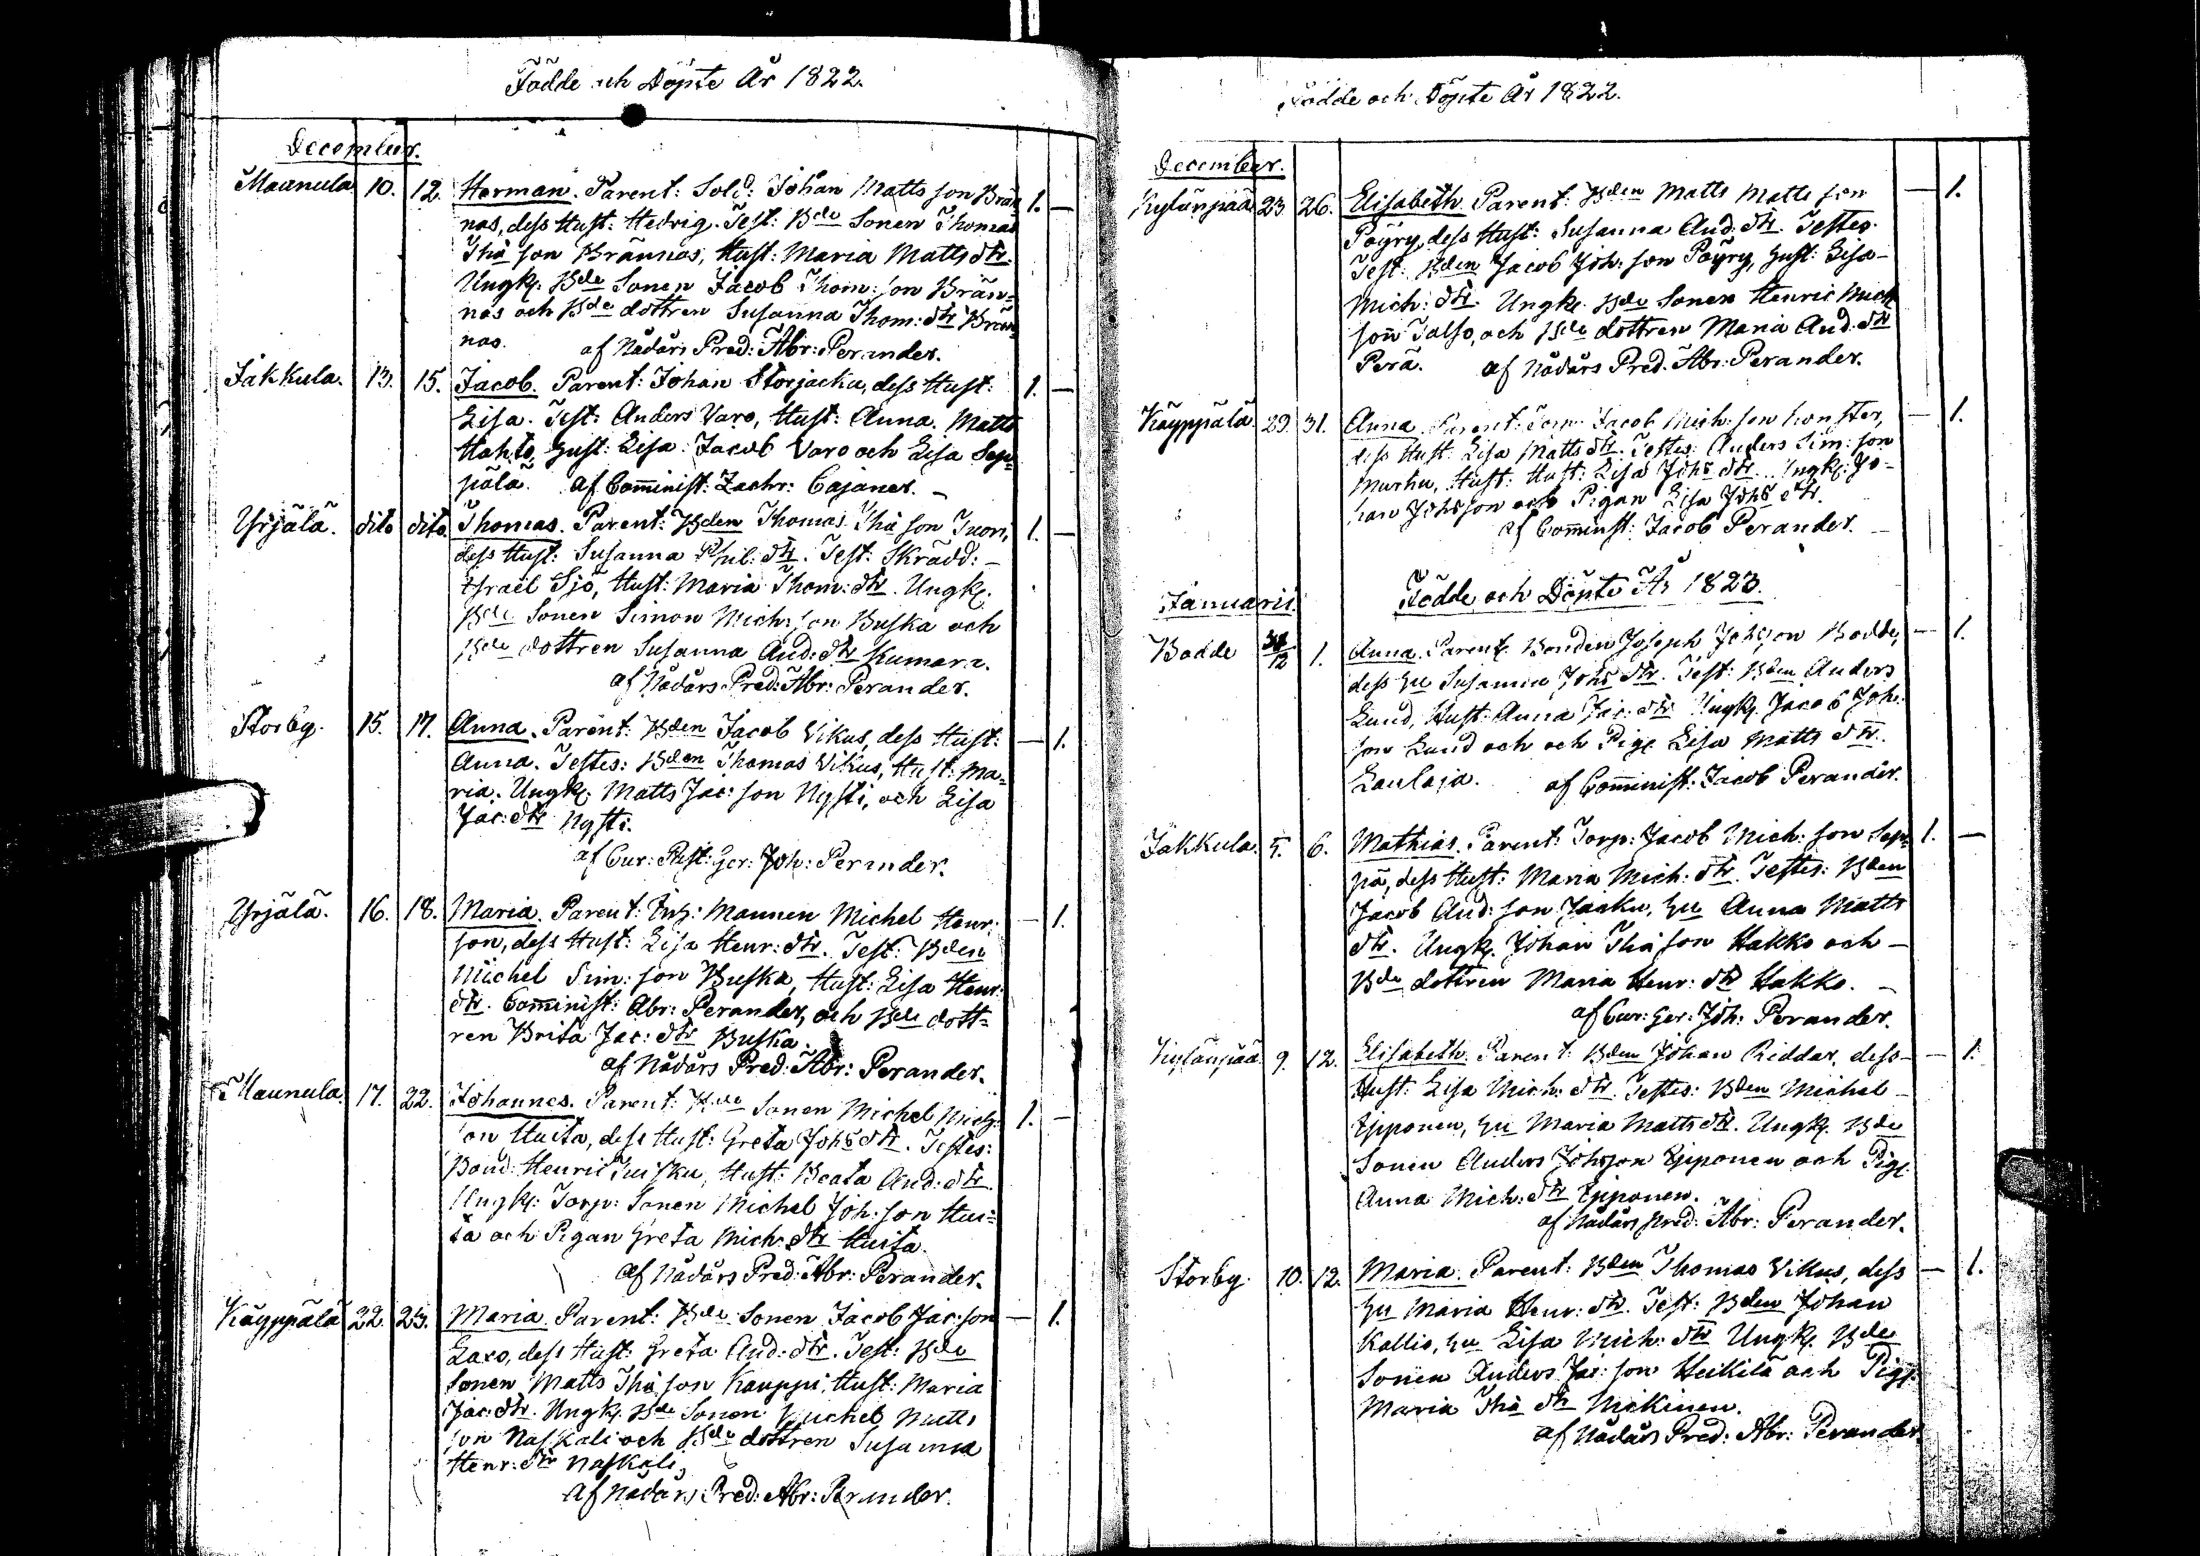 Födde och Döpte År 1822.
December.
Maunula 10. 12. Herman. Parent: Sold: Johan Matts son Brän 1. —
nas, dess Hust: Hedvig. Test: Bde Sonen Thomas
Tho son Brännas, Hust: Maria Matts dtr.
Ungk: Bde Sonen Jacob Thom: son Brän=
nas och Bde dottren Susanna Thom: dtr Brän
nas. af Nådårs Pred: Abr: Perander.
Jakkula. 13. 15. Jacob. Parent: Johan Storjacku, dess Hust: 1. —
Lisa. Test: Anders Varo, Hust: Anna. Matts
Hahto, Hust: Lisa. Jacob Varo och Lisa Sep=
pälä. af Com̄inist: Zachr: Cajaner. —
Yrjälä. dito dito. Thomas. Parent: Bden Thomas Tho son Juori, 1. —
dess Hust: Susanna Phil: dtr. Test: Skrädd: —
Israel Sjö, Hust: Maria Thom: dtr. Ungk:
Bde Sonen Simon Mich: son Buska och
Bde dottren Susanna And: dtr Kumara.
af Nådårs Pred: Abr: Perander.
Storby. 15. 17. Anna. Parent: Bden Jacob Vikus, dess Hust: — 1.
Anna. Testes: Bden Thomas Vikus, Hust: Ma=
ria. Ungk: Matts Jac: son Nysti, och Lisa
Jac: dtr Nysti.
af Cur: Past: Ger: Joh: Perander.
Yrjälä. 16. 18. Maria. Parent: Inh: Mannen Michel Henr: — 1.
son, dess Hust: Lisa Henr: dtr. Test: Bden
Michel Sim: son Buska, Hust: Lisa Henr:
dtr. Com̄inist: Abr: Perander, och Bde dott=
ren Brita Jac: dtr Buska.
af Nådårs Pred: Abr: Perander.
Maunula. 17. 22. Johannes. Parent: Bde Sonen Michel Mich: 1. —
son Huita, dess Hust: Greta Johs dtr. Testes:
Bond: Henric Juisku, Hust: Beata And: dtr.
Ungk: Torp: Sonen Michel Joh: son Hui=
ta och Pigan Greta Mich: dtr Huita.
af Nådårs Pred: Abr: Perander.
Käyppälä 22. 23. Maria. Parent: Bde Sonen Jacob Jac: son — 1.
Laxo, dess Hust: Greta And: dtr. Test: Bde
Sonen Matts Tho son Kauppi, Hust: Maria
Jac: dtr. Ungk: Bde Sonen Michel Matts
son Naskali och Bde dottren Susanna
Henr: dtr Naskali,
af Nådårs Pred: Abr: Perander.
Födde och Döpte År 1822.
December.
Kylänpää 23. 26. Elisabeth. Parent: Bden Matts Matts son — 1.
Pöyry, dess Hust: Susanna And: dtr. Testes.
Test: Bden Jacob Joh: son Pöyry, Hust: Lisa —
Mich: dtr. Ungk: Bde Sonen Henric Mich
son Talso, och Bde dottren Maria And: dtr
Perä. af Nådårs Pred: Abr: Perander.
Käyppälä 29. 31. Anna. Parent: Torp: Jacob Mich: son — 1.
dess Hust: Lisa Matts dtr. Testes: Anders Sim: son
Murhu, Hust: Hust: Lisa Johs dtr. Ungk: Jo=
han Johsson och Pigan Lisa Johs dtr.
af Com̄inist: Jacob Perander. —
Födde och Döpte År 1823.
Januarii.
Bodde 30/12 1. Anna. Parent: Bonden Joseph Johsson Bodde, — 1.
dess Hu Susanna Johs dtr. Test: Bden Anders
Lund, Hust: Anna Jac: dtr Ungk: Jacob Joh:
son Lund och och Pig: Lisa Matts dtr.
Laulaja. af Com̄inist: Jacob Perander.
Jakkula. 5. 6. Mathias. Parent: Torp: Jacob Mich: son Sep= 1. —
pä, dess Hust: Maria Mich: dtr. Testes: Bden
Jacob And: son Jaaku, Hu Anna Matts
dtr. Ungk: Johan Tho son Hakko och —
Bde dottren Maria Henr: dtr Hakko. —
af Cur: Ger: Joh: Perander.
Kylänpää 9. 12. Elisabeth. Parent: Bden Johan Riddar, dess — — 1.
Hust: Lisa Mich: dtr. Testes: Bden Michel —
Epponen, Hu Maria Matts dtr. Ungk: Bde
Sonen Anders Johsson Epponen och Pig:
Anna Mich: dtr Epponen.
af Nådårs Pred: Abr: Perander.
Storby. 10. 12. Maria. Parent: Bden Thomas Vikus, dess — 1.
Hu Maria Henr: dtr. Test: Bden Johan
Kallio, Hu Lisa Mich: dtr Ungk: Bde
Sonen Anders Jac: son Heikilä och Pig:
Maria Tho dtr Nikinen.
af Nådårs Pred: Abr: Perander.